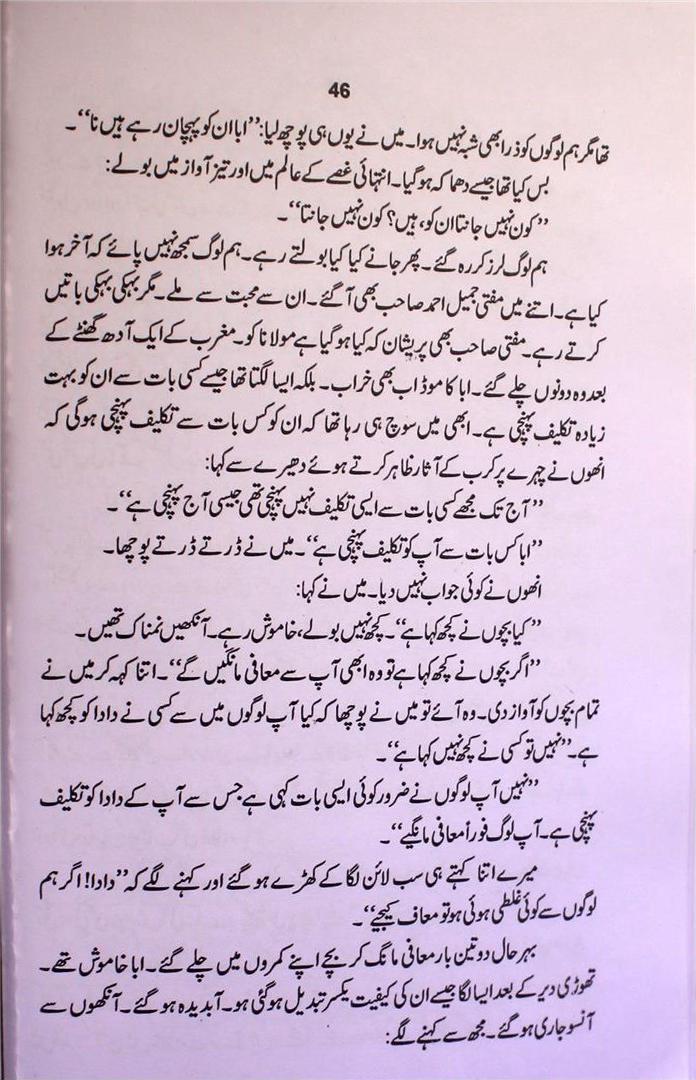 46
تھا مگر ہم لوگوں کو ذرا بھی شبہ نہیں ہوا۔ میں نے یوں ہی پوچھ لیا: ”ابا ان کو پہچان رہے ہیں نا“۔
بس کیا تھا جیسے دھماکہ ہو گیا۔ انتہائی غصے کے عالم میں اور تیز آواز میں بولے:
”کون نہیں جانتا ان کو، ہیں؟ کون نہیں جانتا“۔
ہم لوگ لرز کر رہ گئے۔ پھر جانے کیا کیا بولتے رہے۔ ہم لوگ سمجھ نہیں پائے کہ آخر ہوا
کیا ہے۔ اتنے میں مفتی جمیل احمد صاحب بھی آ گئے۔ ان سے محبت سے ملے۔ مگر بہکی بہکی باتیں
کرتے رہے۔ مفتی صاحب بھی پریشان کہ کیا ہو گیا ہے مولانا کو۔ مغرب کے ایک آدھ گھنٹے کے
بعد وہ دونوں چلے گئے۔ ابا کا موڈ اب بھی خراب۔ بلکہ ایسا لگتا تھا جیسے کسی بات سے ان کو بہت
زیادہ تکلیف پہنچی ہے۔ ابھی میں سوچ ہی رہا تھا کہ ان کو کس بات سے تکلیف پہنچی ہوگی کہ
انھوں نے چہرے پر کرب کے آثار ظاہر کرتے ہوئے دھیرے سے کہا:
”آج تک مجھے کسی بات سے ایسی تکلیف نہیں پہنچی تھی جیسی آج پہنچی ہے“۔
”ابا کس بات سے آپ کو تکلیف پہنچی ہے“۔ میں نے ڈرتے ڈرتے پوچھا۔
انھوں نے کوئی جواب نہیں دیا۔ میں نے کہا:
”کیا بچوں نے کچھ کہا ہے“۔ کچھ نہیں بولے، خاموش رہے۔ آنکھیں نمناک تھیں۔
”اگر بچوں نے کچھ کہا ہے تو وہ ابھی آپ سے معافی مانگیں گے“۔ اتنا کہہ کر میں نے
تمام بچوں کو آواز دی۔ وہ آئے تو میں نے پوچھا کہ کیا آپ لوگوں میں سے کسی نے دادا کو کچھ کہا
ہے۔ ”نہیں تو کسی نے کچھ نہیں کہا ہے“۔
”نہیں آپ لوگوں نے ضرور کوئی ایسی بات کہی ہے جس سے آپ کے دادا کو تکلیف
پہنچی ہے۔ آپ لوگ فوراً معافی مانگیے“۔
میرے اتنا کہتے ہی سب لائن لگا کے کھڑے ہو گئے اور کہنے لگے کہ ”دادا! اگر ہم
لوگوں سے کوئی غلطی ہوئی ہو تو معاف کیجیے“۔
بہر حال دو تین بار معافی مانگ کر بچے اپنے کمروں میں چلے گئے۔ ابا خاموش تھے۔
تھوڑی دیر کے بعد ایسا لگا جیسے ان کی کیفیت یکسر تبدیل ہو گئی ہو۔ آبدیدہ ہو گئے۔ آنکھوں سے
آنسو جاری ہو گئے۔ مجھ سے کہنے لگے: